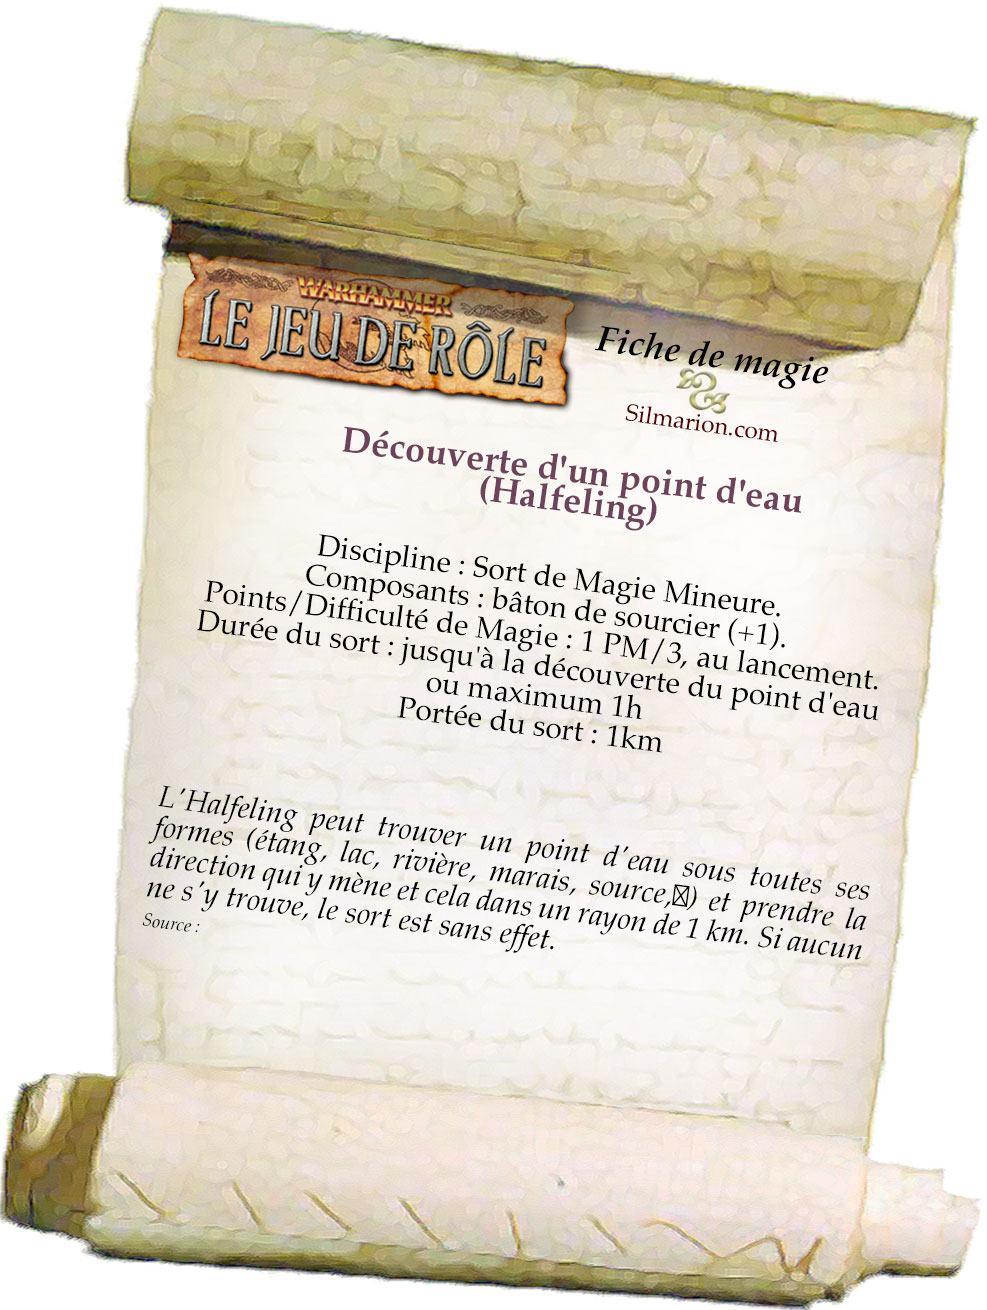 WARHAMMER
LE JEU DE RÔLE
Fiche de magie
Silmarion.com
Découverte d'un point d'eau
(Halfeling)
Discipline : Sort de Magie Mineure.
Composants : bâton de sourcier (+1).
Points/Difficulté de Magie : 1 PM/3, au lancement.
Durée du sort : jusqu'à la découverte du point d'eau
ou maximum 1h
Portée du sort : 1km
L'Halfeling peut trouver un point d'eau sous toutes ses
formes (étang, lac, rivière, marais, source,) et prendre la
direction qui y mène et cela dans un rayon de 1 km. Si aucun
ne s'y trouve, le sort est sans effet.
Source :